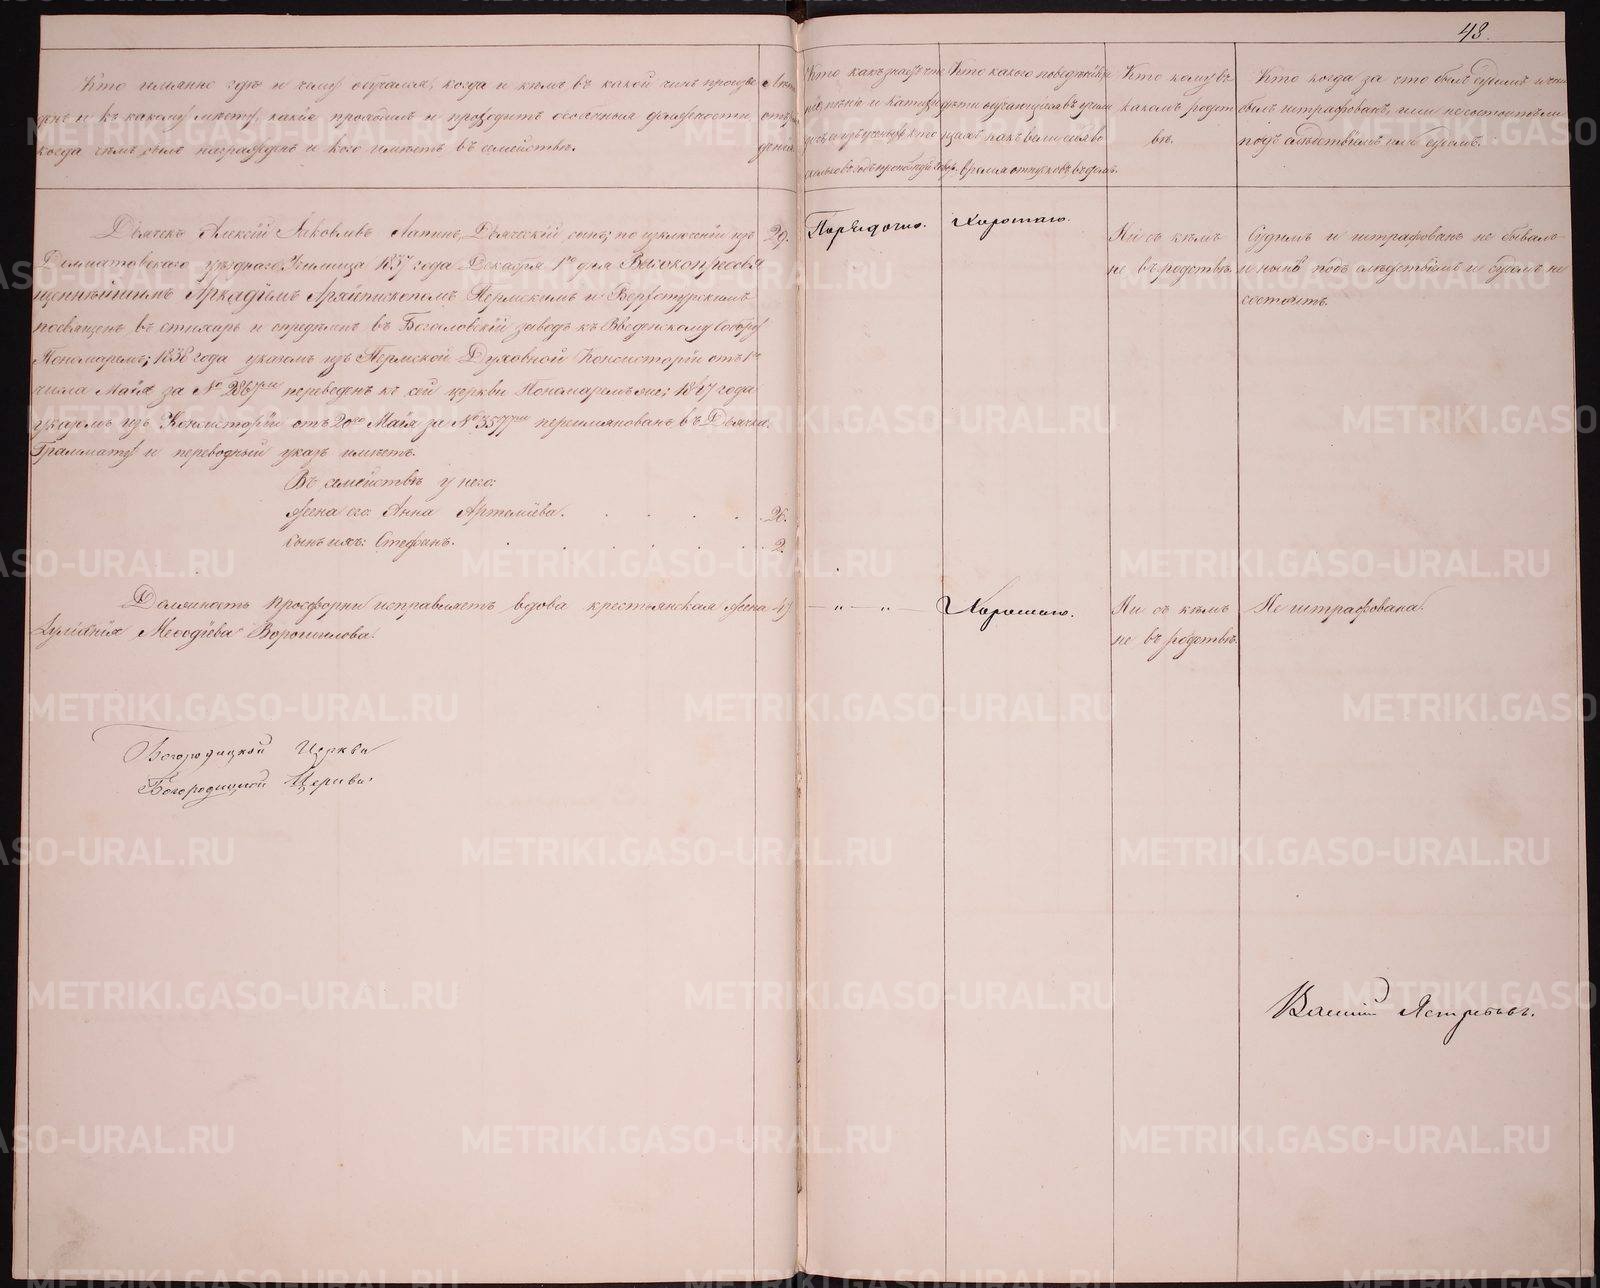 43.
Кто имянно гдѣ и чему обучался, когда и кѣмъ въ какой чинъ произве
денъ и къ какому мѣсту, какія проходилъ и проходитъ особенныя должности,
когда чѣмъ былъ награжденъ и кого имѣетъ въ семействѣ.
Лѣта
отъ рож
денія
Кто какъ знаетъ чте
ніе, пѣніе и катихи
Кто какого поведенія и
дѣти обучающіяся въ учили
щахъ какъ вели себя во
время отпусковъ въ домъ.
Кто кому въ
какомъ родст
вѣ.
Кто когда за что былъ судимъ и чѣмъ
былъ штрафованъ, или не состоитъ ли
подъ слѣдствіемъ или судомъ.
Дьячекъ Алексій Яковлевъ Лапинъ, Дьяческій сынъ; по изключеніи изъ
Далматовскаго уѣзднаго Училища 1837 года Декабря 1го дня Высокопреосвя
щеннѣйшимъ Аркадіемъ Архіепископомъ Пермскимъ и Верхотурскимъ
посвященъ въ стихарь и опредѣленъ въ Богословскій заводъ къ Введенскому Собору
Пономаремъ; 1838 года указомъ изъ Пермской Духовной Консисторіи отъ 1го
числа Майя за № 2867мъ переведенъ къ сей церкви Пономаремъ же; 1847 года
указомъ изъ Консисторіи отъ 20го Майя за № 3577мъ переимянованъ въ Дьячки,
Граммату и переводный указъ имѣетъ.
29.
Порядочно.
Хорошаго.
Ни съ кѣмъ
не въ родствѣ.
Судимъ и штрафованъ не бывалъ
и нынѣ подъ слѣдствіемъ и судомъ не
состоитъ.
Въ семействѣ у него:
Жена его: Анна Артеміева. . . . . . 26.
Сынъ ихъ: Стефанъ. . . . . . . 2.
Должность просфорни исправляетъ вдова крестьянская жена
Меѳодіева Ворошилова.
47
— „ — „ —
Хорошаго.
Ни съ кѣмъ
не въ родствѣ.
Не штрафована.
Богородицкой Церкви
Богородицкой Церкви
Василій Ястребовъ.
METRIKI.GASO-URAL.RU